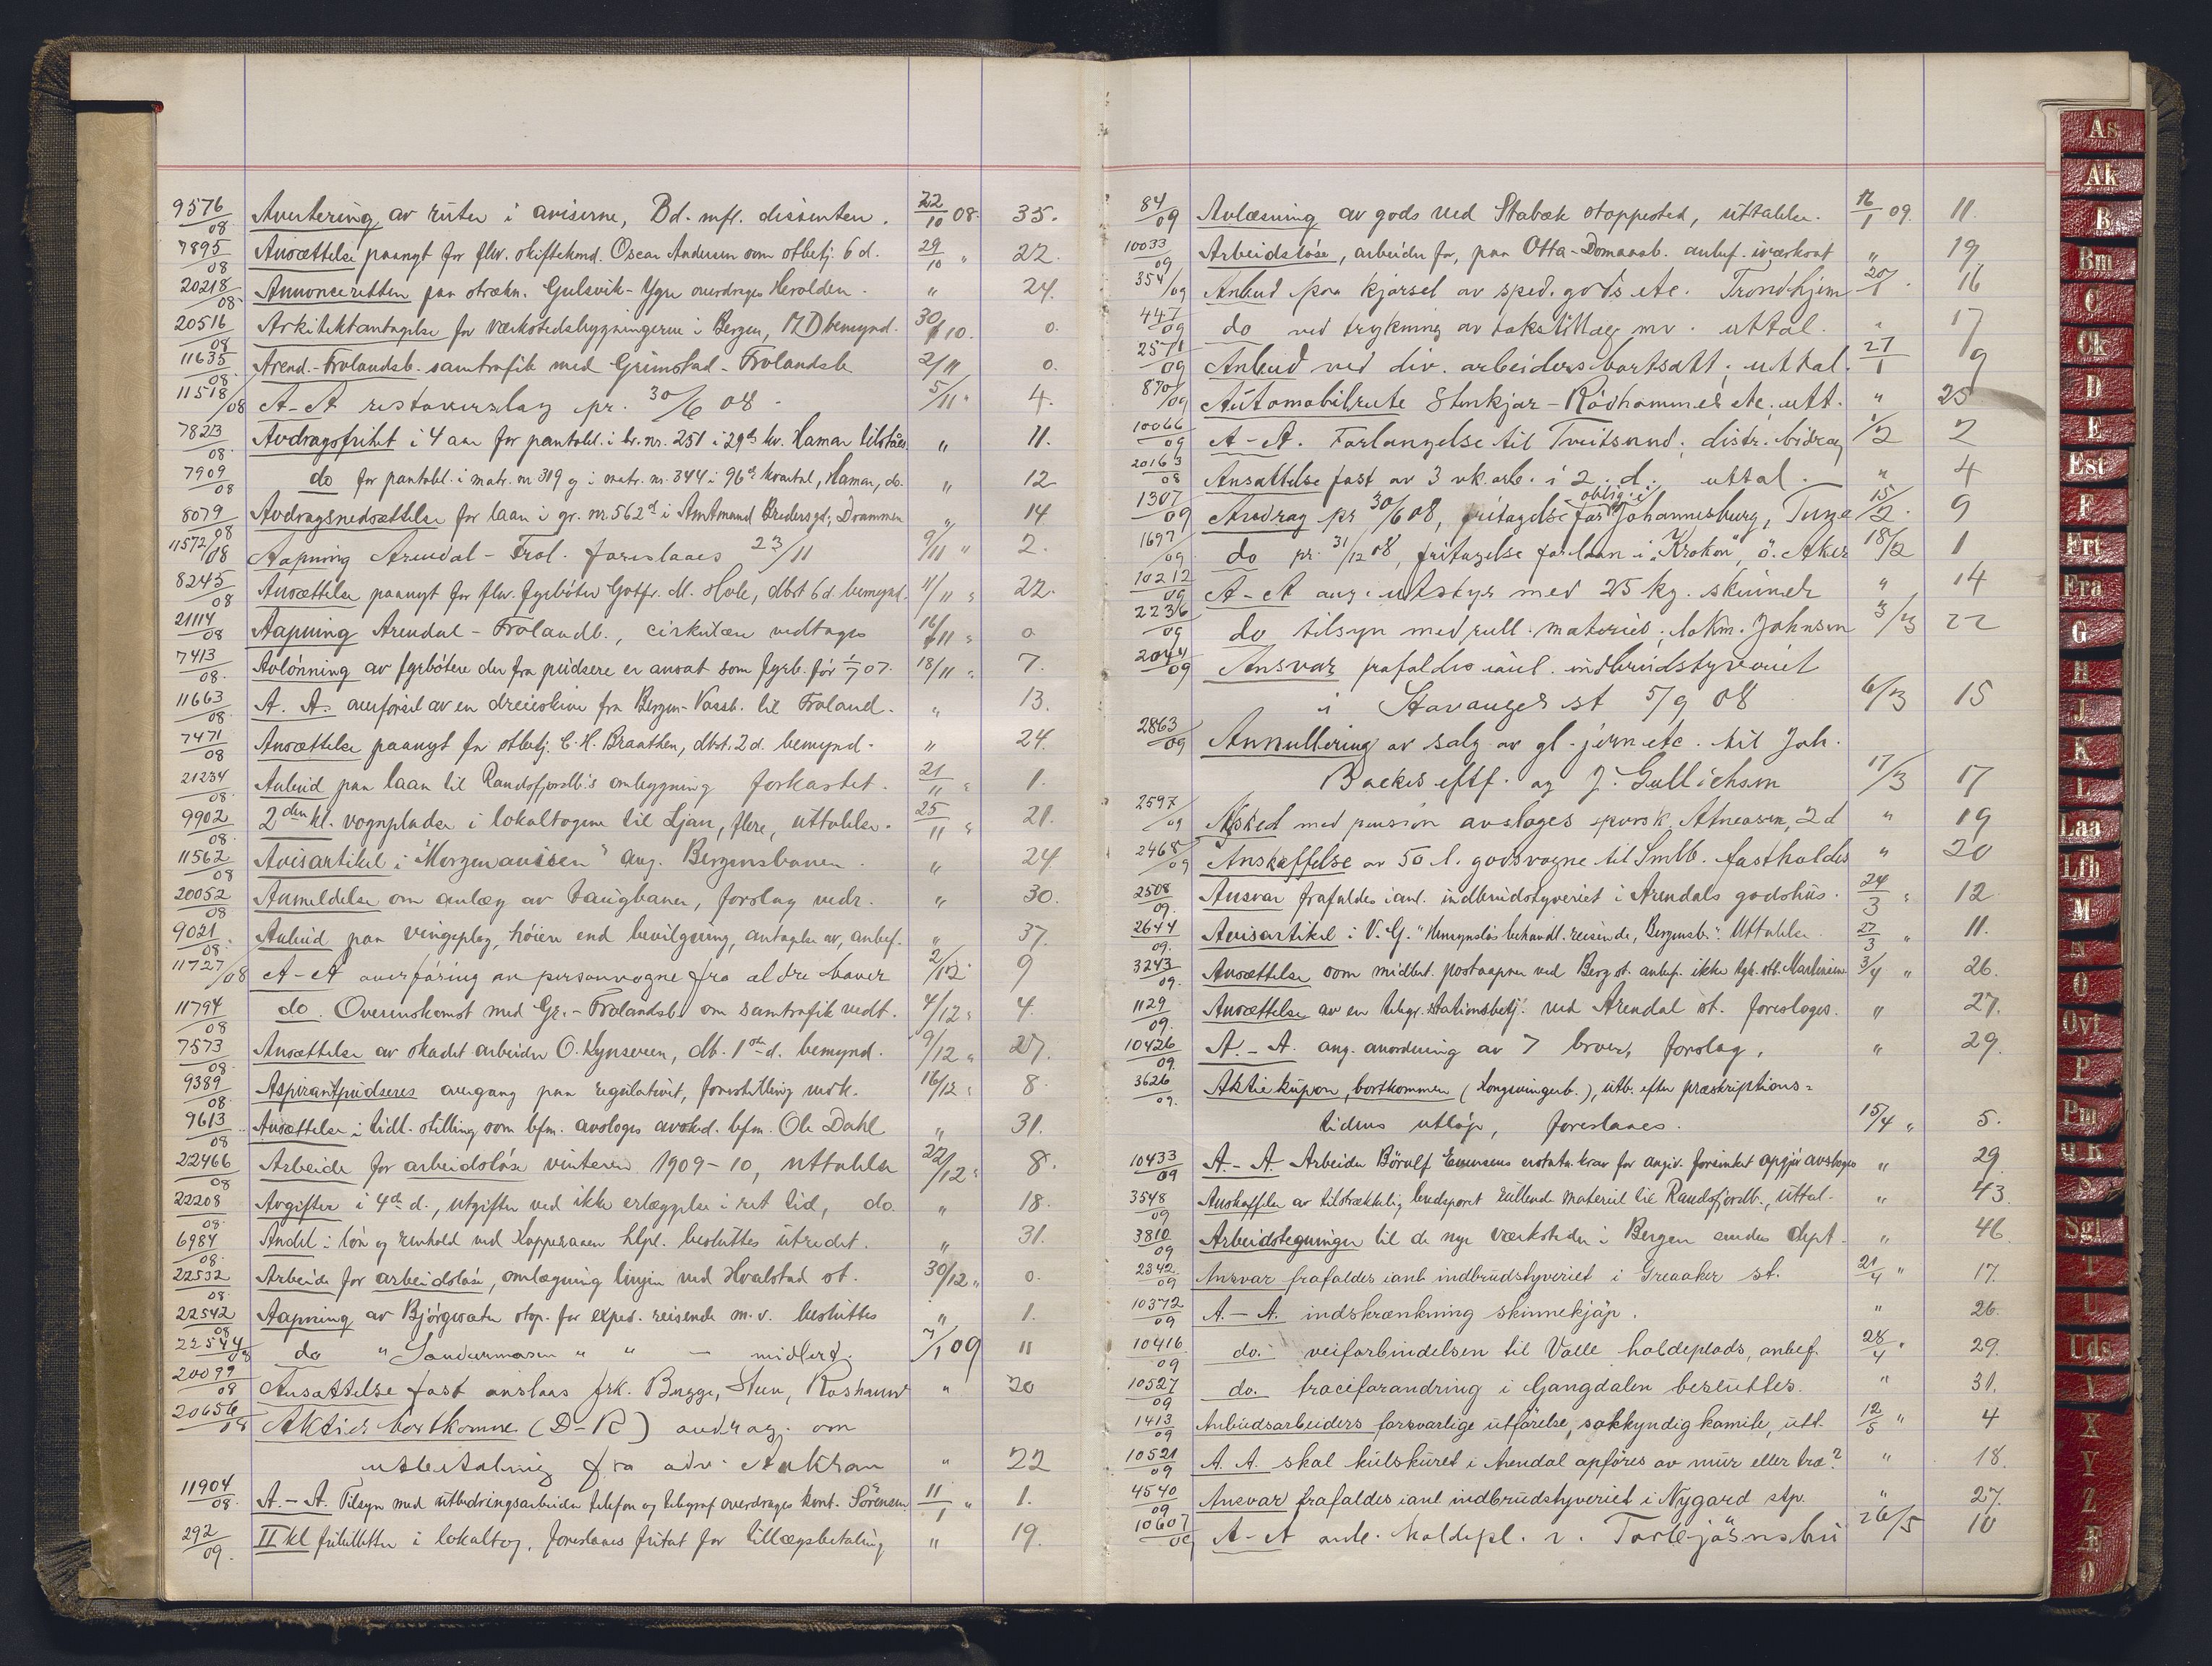 9576/08 Avertering av ruter i aviserne, Bd. mfl. dissenter. 22/10 08. 35.
7895/08 Ansættelse paanyt for flv. skiftekond. Oscar Andersen som stbetj. 6 d. 29/10 " 22.
20218/08 Annonceretten paa strækn. Gulsvik- overdrages Heralden. " 24.
20516/08 Arkitektantagelse for værkstedsbygningerne i Bergen, bemynd. 30/10. 0.
11635/08 Arend.-Frolandsb. samtrafik med Grimstad-Frolandsb. 2/11 0.
11518/08 A-A restoverslag pr. 30/6 08. 5/11 " 4.
7823/08 Avdragsfrihet i 4 aar for pantobl. i br. nr. 251 i 29de kv. Hamar tilstaaes " 11.
7909/08 do for pantobl. i matr. nr 319 og i matr. nr. 344 i 96de kvartal, Hamar, do. " 12
8079/08 Avdragsnedsættelse for laan i gr. nr. 562d i Amtmand Bredersgd., Drammen " 14
11572/08 Aapning Arendal-Frol. foreslaaes 23/11 9/11 " 2.
8245/08 Ansættelse paanyt for flv. fyrbøter Gotfr. M. Hole, dbst 6 d. bemynd. 11/11 " 22.
21114/08 Aapning Arendal-Frolandb., cirkulære vedtages 16/11 " 0
7413/08. Avlønning av fyrbøtere der fra pudsere er ansat som fyrb. før 1/7 07. 18/11 " 7.
11663/08. A. A. overførsel av en dreieskive fra Bergen-Vossb. til Froland. " 13.
7471/08 Ansættelse paanyt for stbetj. C. H. Braathen, dbst. 2 d. bemynd. " 24.
21234/08. Anbud paa laan til Randsfjordb.'s ombygning forkastet. 21/11 " 1.
9902/08. 2den kl. vognpladse i lokaltogene til Ljan, flere, uttalelse. 25/11 " 21.
11562/08 Avisartikel i "Morgenavisen" ang. Bergensbanen. " 24
20052/08 Anmeldelse om anlæg av taugbaner, forslag vedr. " 30.
9021/08. Anbud paa vingeplog, høiere end bevilgning, antagelse av, anbef. " 37.
11727/08 A-A overføring av personvogne fra ældre baner 2/12 9
11794/08 do. Overenskomst med Gr.-Frolandsb. om samtrafik vedt. 4/12 " 4.
7573/08. Ansættelse av skadet arbeider O. Synseveen, db. 1ste d. bemynd. 9/12 " 27.
9389/08. Aspirantpudseres avgang paa regulativet, forestilling vedk. 16/12 " 8.
9613/08 Ansættelse i tidl. stilling som bfm. avslages avsked. bfm. Ole Dahl " 31.
22466/08 Arbeide for arbeidsløse vinteren 1909-10, uttalelse 22/12 " 8.
22208/08. Avgifter i 4de d., utgifter ved ikke erlæggelse i ret tid, do. " 18.
6984/08. Andel i løn og renhold ved Kopperaaen hlpl. besluttes utredet. " 31.
22532/08. Arbeide for arbeidsløse, omlægning linjen ved Hvalstad st. 30/12 " 0.
22542/08 Aapning av Bjørgesæter stp. for exped. reisende m. v. besluttes " 1.
22544/08 do " Sandermosen " " — midlerd. 7/1 09 11
20099/08 Ansættelse fast avslaas frk. Bugge, Steen, " 20
20656/08 Aktier bortkomne (D-R) andrag. om
utbetaling fra adv. " 22
11904/08. A.-A. Tilsyn med utbedringsarbeider telefon og telegraf overdrages kont. Sørensen 11/1 " 1.
292/09. II kl fribilletter i lokaltog, foreslaaes fritat for tillægsbetaling " 19.
84/09 Avlæsning av gods ved Stabæk stoppested, uttalelse. 16/1 09. 11.
10033/09 Arbeidsløse, arbeider for, paa Otta-Domaasb. anbef. iværksat " 19
354/09 Anbud paa kjørsel av sped. gods etc. Trondhjem 20/1. 16
447/09 do ved trykning av takstillæg mv. uttal. " 17
2571/09 Anbud ved div. arbeiders bortsatt; uttal. 27/1 9
870/09 Automobilrute Stenkjær-Rødhammer etc; utt. " 25
10066/09 A-A. Forlængelse til Tveitsund; distr. bidrag 1/2 2
20163/08 Ansættelse fast av 3 vk.arb. i 2. d. uttal. " 4
1307/09 Avdrag pr 30/6 08, fritagelse for oblig. i Johannesburg, Tune 15/2. 9
1697/09 do pr. 31/12 08, fritagelse for laan i "Kroken", ø. Aker 18/2 1
10212/09 A-A ang. utstyr med 25 kg. skinner " 14
2236/09 do tilsyn med rull. materiel. lokm. Johnsen 3/3 22
2044/09 Ansvar frafaldes ianl. indbrudstyveriet
i Stavanger st 5/9 08 6/3 15
2863/09 Annullering av salg av gl. jern etc. til Joh.
Backes eftf. og J. Gullichsen 17/3 17
2597/09 Avsked med pension avslages sporsk. Atneosen, 2d " 19
2468/09 Anskaffelse av 50 l. godsvogne til Smlb. fastholdes " 20
2508/09. Ansvar frafaldes ianl. indbrudstyveriet i Arendals godshus. 24/3 " 12
2644/09. Avisartikel i V. G. "Hensynsløs behandl. reisende, Bergensb." Uttalelse 27/3 " 11.
3243/09. Ansættelse som midlert. postaapner ved Berg st. anbef. ikke tgk. stb. Martinsen 3/4 " 26.
1129/09. Ansættelse av en telegr. stationsbetj. ved Arendal st. foreslages. " 27.
10426/09. A.-A. ang. anordning av 7 broer, forslag, " 29.
3626/09. Aktiekupon, bortkommen (Kongsvingerb.), utb. efter præskriptions-
tidens utløp, foreslaaes. 15/4 " 5.
10433/09 A.-A. Arbeider Børulf Evensens erstatn.krav for angiv. forsinket opgjør avslages " 29
3548/09 Anskaffelse av tilstrækkelig bredsporet rullende materiel til Randsfjordb., uttal. " 43.
3810/09 Arbeidstegninger til de nye værksteder i Bergen sendes dept. " 46
2342/09 Ansvar frafaldes ianl. indbrudstyveriet i Greaaker st. 21/4 " 17.
10372/09 A.-A. indskrænkning skinnekjøp. " 26.
10416/09 do. veiforbindelsen til Valle holdeplads, anbef. 28/4 " 29.
10527/09 do. traceforandring i Gangdalen besluttes. " 31.
1413/09 Anbudsarbeiders forsvarlige utførelse, sakkyndig komite, utt. 12/5 " 4
10521/09 A. A. skal kulskuret i Arendal opføres av mur eller træ? " 18.
4540/09 Ansvar frafaldes ianl indbrudstyveriet i Nygard stp. " 27.
10607/09 A-A anl. holdepl. v. Torbjørnsbu 26/5 10
As
Ak
B
Bm
C
Ck
D
E
Est
F
Frt
Fra
G
H
J
K
L
Laa
Lfb
M
N
O
Ovf
P
Pm
Q R
S
Sgl
T
U
Uds
V
X
Y
Z
Æ
Ø